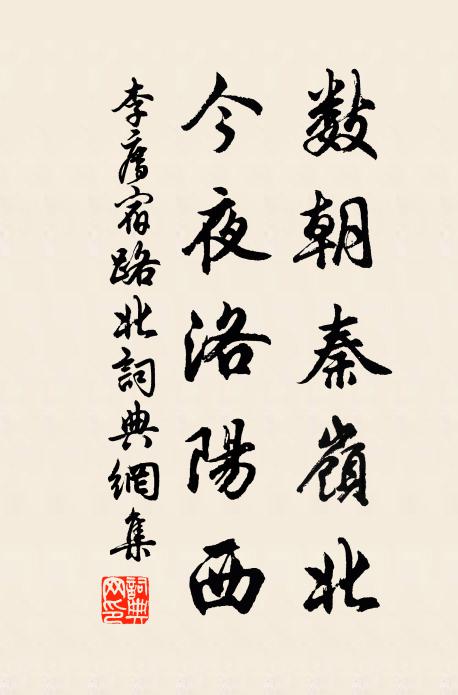 數朝秦嶺北
今夜洛陽西
李廌宿路北詞典網集
詞典网印